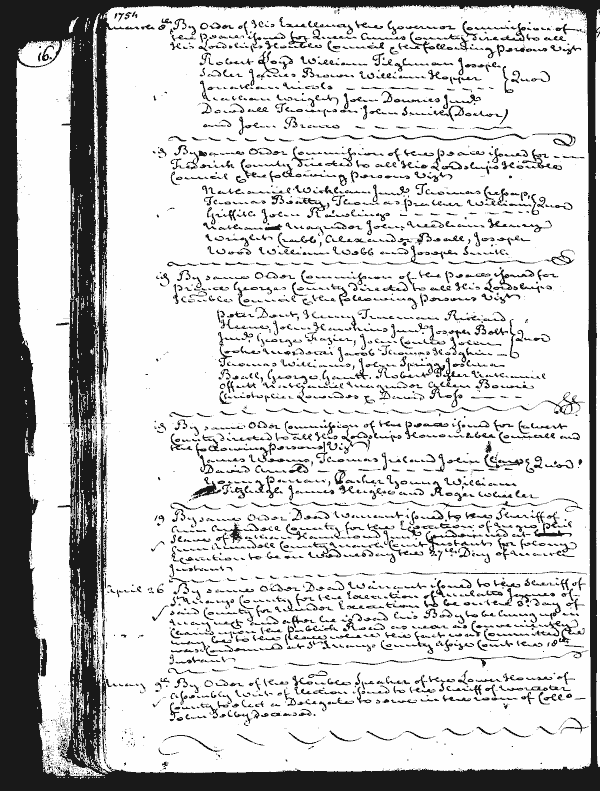 1754
16.
March 5th By Order of His Excellency the Governor Commission of
the peace issued for Queen Anns County directed to all
His Lordships Honble Council & the following Persons Vizt
Robert Loyd William Tilghman Joseph
Sudler James Brown William Hopper Quor
Jonathan Nicols
Nathan Wright, John Downes Junr
Dowdall Thompson John Smith (Doctor)
and John Brown
19 By same Order Commission of the peace issued for
Fredrick County directed to all His Lordships Honble
Council & the following Persons Vizt
Nathaniel Wickham Junr Thomas Cresap,
Thomas Beatty, Thomas Prather William Quor
Griffith John Rawlings
Nathan Magruder John Needham Henry
Wright Crabb, Alexander Beall, Joseph
Wood William Webb and Joseph Smith
19 By same Order Commission of the peace issued for
Prince Georges County directed to all His Lordships
Honble Council & the following Persons Vizt
Peter Dent, Henry Trueman Richard
Keene, John Hawkins Junr Joseph Belt
Junr George Frazier, John Cooke John Quor
Cooke Mordecai Jacob Thomas Hodgkin
Thomas Williams, John Sprigg Joshua
Beall, George Gantt, Robert Tyler Nathaniel
Offutt Nathaniel Magruder Allen Bowie
Christopher Lowndes & David Ross
19 By same Order Commission of the peace issued for Calvert
County directed to all His Lordships Honourable Councill and
the following Persons Vizt
James Weems, Thomas Ireland John Quor
David Arnold
Young Parran, Parker Young William
Fitzhugh James Heighe and Roger Wheeler
19 By same Order Dead Warrant issued to the Sheriff of
Ann Arundell County for the Execution of Negro Phil
Slave of Condemned at
Ann Arundell County March Court Instant for felony
Execution to be on Wednesday the 27th Day of March
Instant
April 26 By same Order Dead Warrant issued to the Sheriff of
St Marys County for the Execution of Mulatto James of
said County for Murder Execution to be on the 3d day of
May next and after he is dead his Body to be hung up in
Chains near the publick Road as near as conveniently
may be to the place where the fact was Committed He
was Condemned at St Marys County Assize Court the 18th
Instant
May 9th By Order of the Honble Speaker of the Lower House of
Assembly Writ of Election issued to the Sheriff of Worcester
County to elect a Delegate to serve in the room of Collo
John Selby deceased.